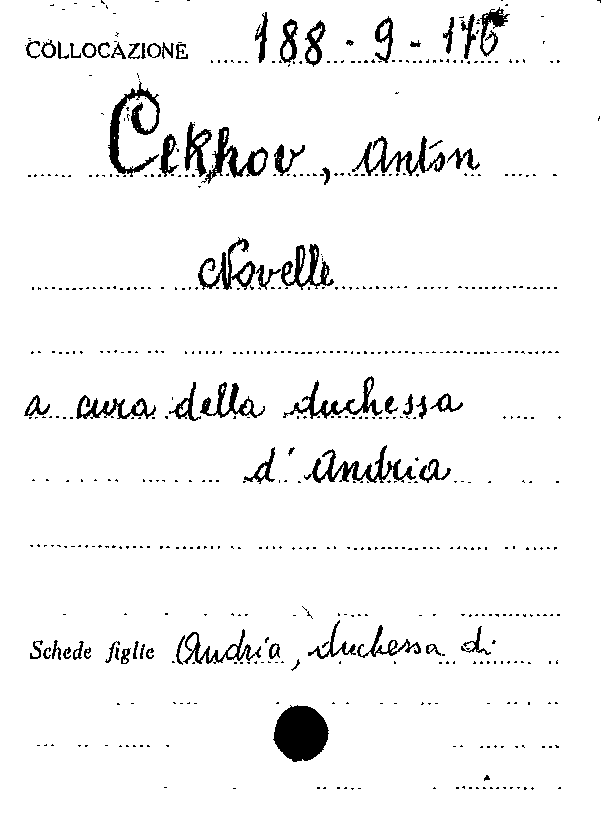 COLLOCAZIONE 188-9-176
Cekhov, Anton
Novelle
a cura della duchessa
d'Andria
Schede figlie Andria, duchessa di